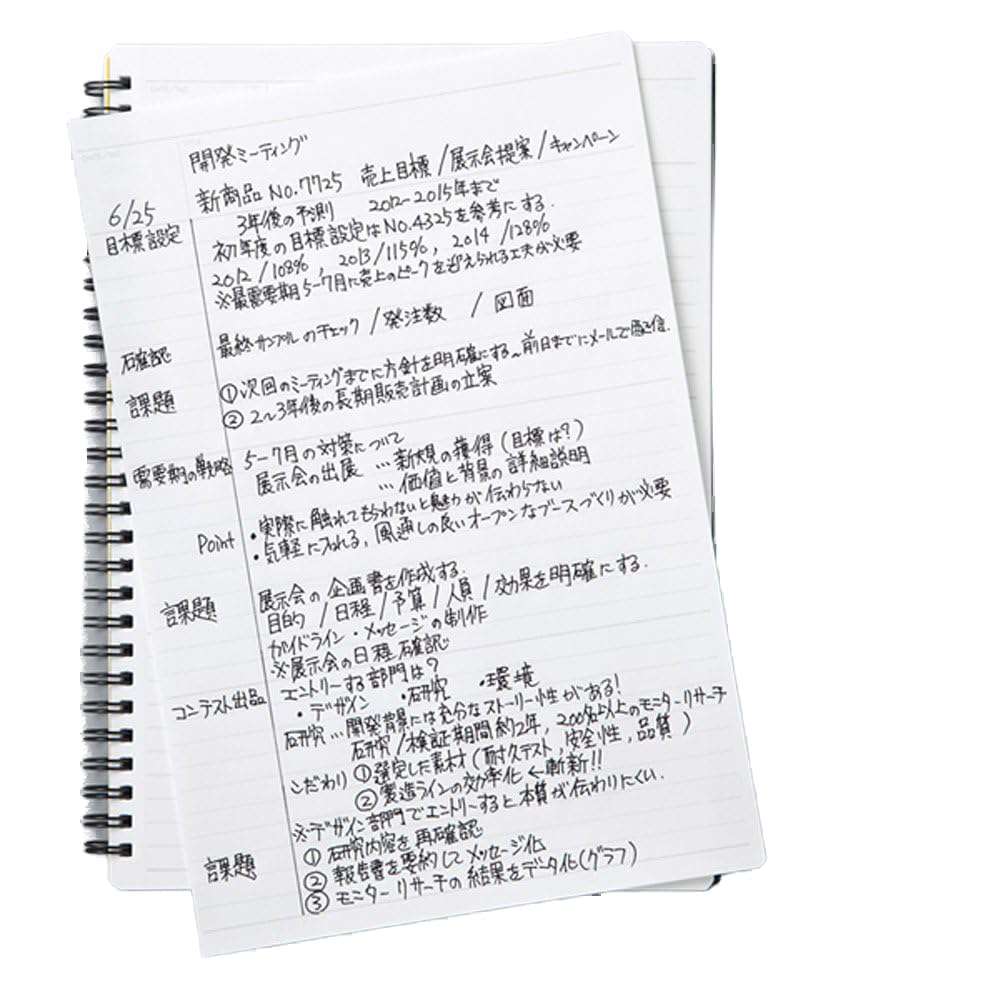 開発ミーティング
6/25 新商品 NO.7725 売上目標/展示会提案/キャンペーン
目標設定 3年後の予測 2012~2015年まで
初年度の目標設定はNO.4325を参考にする.
2012/108%, 2013/115%, 2014/128%
※最需要期5-7月に売上のピークを迎えられる工夫が必要
確認 最終サンプルのチェック/発注数 /図面
課題 ①次回のミーティングまでに方針を明確にする~前日までにメールで配信.
② 2~3年後の長期販売計画の立案
需要期の戦略 5-7月の対策について
展示会の出展 …新規の獲得(目標は?)
…価値と背景の詳細説明
Point ・実際に触れてもらわないと魅力が伝わらない
・気軽に入れる,風通しの良いオープンなブースづくりが必要
課題 展示会の企画書を作成する.
目的/日程/予算/人員/効果を明確にする.
ガイドライン・メッセージの制作
※展示会の日程確認
コンテスト出品 エントリーする部門は?
・デザイン ・研究 ・環境
研究…開発背景には充分なストーリー性がある!
研究/検証期間約2年,200名以上のモニターリサーチ
こだわり ①選定した素材(耐久テスト,安全性,品質)
②製造ラインの効率化←斬新!!
※デザイン部門でエントリーすると本質が伝わりにくい.
課題 ① 研究内容を再確認
② 報告書を要約してメッセージ化
③ モニターリサーチの結果をデータ化(グラフ)